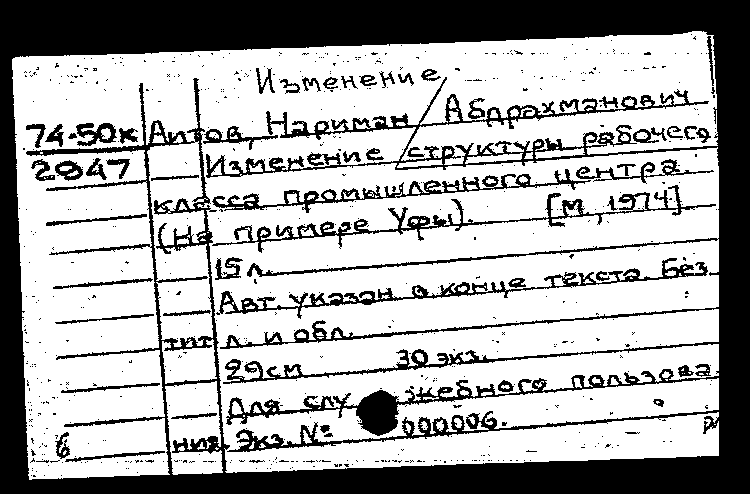 Изменение
74-50к Аитов, Нариман Абдрахманович
2947 Изменение структуры рабочего
класса промышленного центра.
(На примере Уфы). [М., 1974].
15 л.
Авт. указан в конце текста. Без
тит. л. и обл.
29см 30 экз.
Для служебного пользова
ния. Экз. № 000006.
б